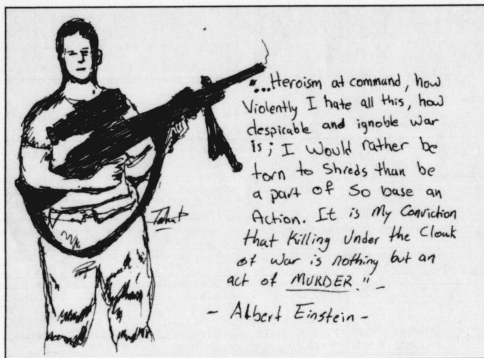 "...Heroism at command, how
Violently I hate all this, how
despicable and ignoble war
is; I would rather be
torn to Shreds than be
a part of So base an
Action. It is My Conviction
that Killing Under the Cloak
of War is nothing but an
act of MURDER."-
- Albert Einstein -